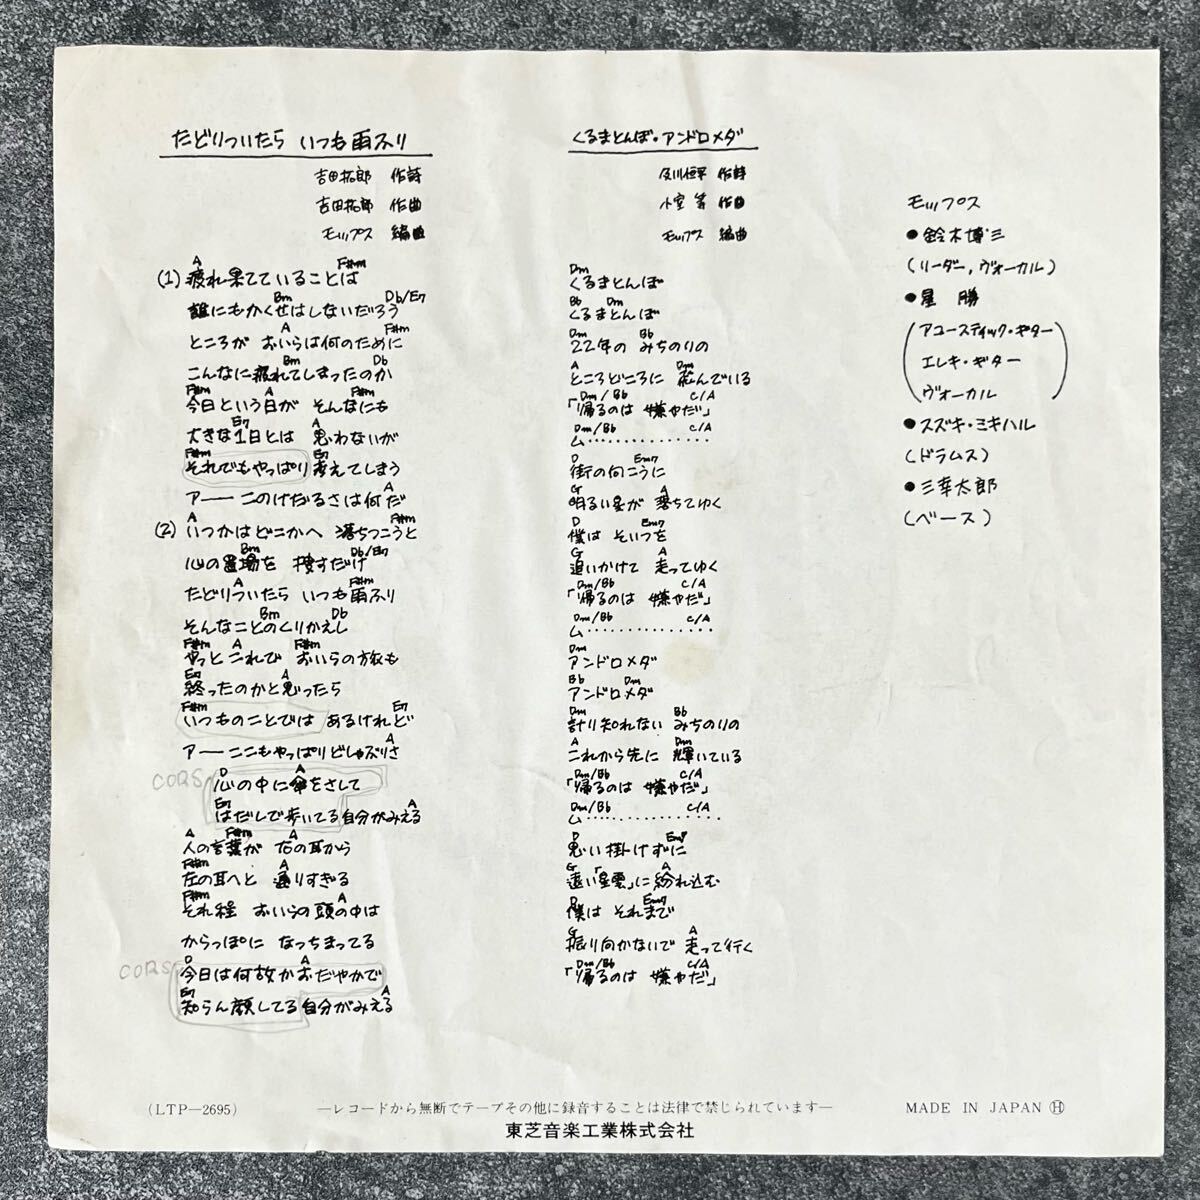 たどりついたら いつも雨ふり
吉田拓郎 作詩
吉田拓郎 作曲
モップス 編曲
A F#m
(1) 疲れ果てていることは
Bm Db/E7
誰にもかくせはしないだろう
A F#m
ところが おいらは何のために
Bm Db
こんなに疲れてしまったのか
F#m A F#m
今日という日が そんなにも
E7 A
大きな1日とは 思わないが
F#m E7
それでもやっぱり 考えてしまう
A
アーー このけだるさは何だ
A F#m
(2) いつかはどこかへ 落ちつこうと
Bm Db/E7
心の置場を 捜すだけ
A F#m
たどりついたら いつも雨ふり
Bm Db
そんなことのくりかえし
F#m A F#m
やっとこれで おいらの旅も
E7 A
終ったのかと思ったら
F#m E7
いつものことでは あるけれど
アーー ここもやっぱりどしゃぶりさ
CORS
D A
心の中に傘をさして
E7 A
はだしで歩いてる自分がみえる
A F#m A
人の言葉が 右の耳から
F#m A
左の耳へと 通りすぎる
F#m A
それ程 おいらの頭の中は
からっぽに なっちまってる
CORS
D A
今日は何故かおだやかで
E7 A
知らん顔してる自分がみえる
くるまとんぼ・アンドロメダ
及川恒平 作詩
小室等 作曲
モップス 編曲
Dm
くるまとんぼ
Bb Dm
くるまとんぼ
Dm Bb
22年の みちのりの
A Dm
ところどころに 飛んでいる
Dm/Bb C/A
「帰るのは 嫌やだ」
Dm/Bb C/A
ム‥‥‥‥‥‥
D Em7
街の向こうに
G A
明るい星が 落ちてゆく
D Em7
僕は そいつを
G A
追いかけて 走ってゆく
Dm/Bb C/A
「帰るのは 嫌やだ」
Dm/Bb C/A
ム‥‥‥‥‥‥
Dm
アンドロメダ
Bb Dm
アンドロメダ
Dm Bb
計り知れない みちのりの
A Dm
これから先に 輝いている
Dm/Bb C/A
「帰るのは 嫌やだ」
Dm/Bb C/A
ム‥‥‥‥‥‥
D Em7
思い掛けずに
G A
遠い「星雲」に 紛れ込む
D Em7
僕は それまで
G A
振り向かないで 走って行く
Dm/Bb C/A
「帰るのは 嫌やだ」
モップス
●鈴木博三
(リーダー,ヴォーカル)
●星 勝
(アコースティック・ギター
エレキ・ギター
ヴォーカル)
●スズキ・ミキハル
(ドラムス)
●三幸太郎
(ベース)
(LTP—2695)
—レコードから無断でテープその他に録音することは法律で禁じられています—
MADE IN JAPAN Ⓗ
東芝音楽工業株式会社